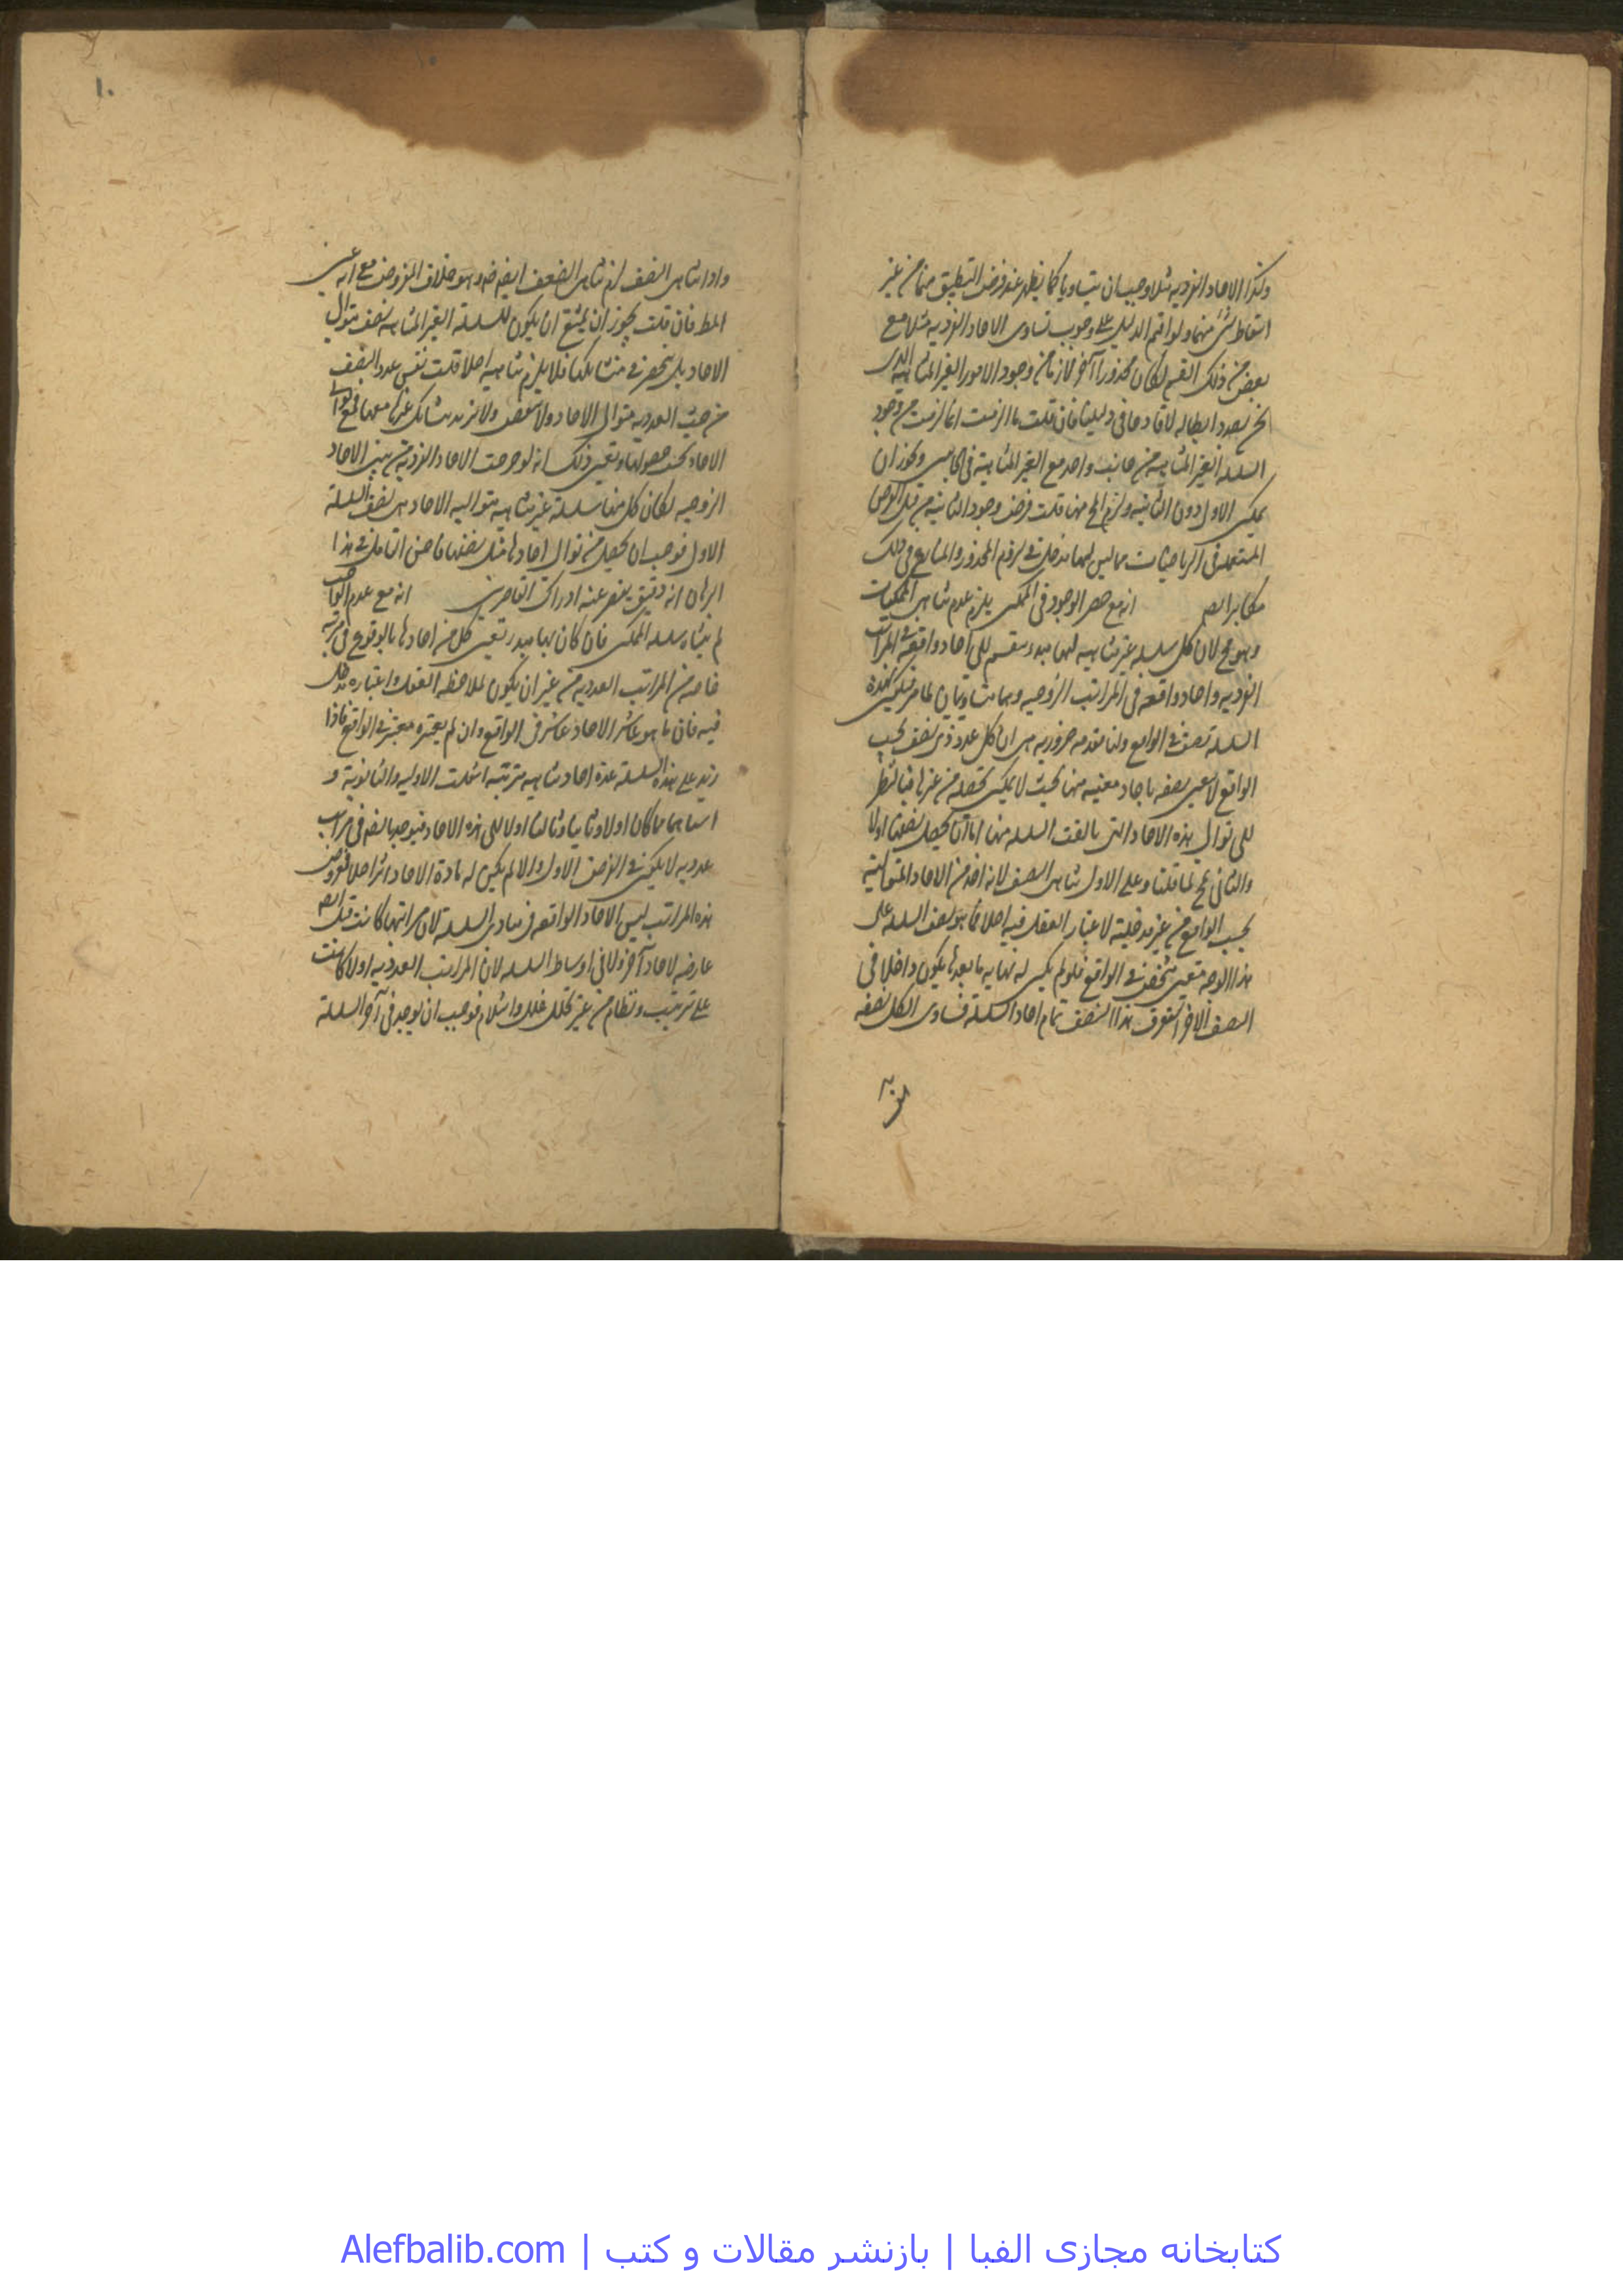 ولذا الاحاد الفرديه مثلا وجب ان يتساويا كما يظهر عند فرض التطبيق منهما من غير
اسقاط شئ منهما ولو اقيم الدليل على وجوب تساوى الاحاد الفرديه مثلا مع
بعض من ذلك القبيل لكان محذورا آخر لازما من وجود الامور الغير المتناهيه الذى
نحن بصدد ابطاله لا قادحا فى دليلنا فان قلت ما الزمت انما لزمت من وجود
السلسله الغير المتناهيه من جانب واحد مع الغير المتناهية فى الجانبين ويجوز ان
يمكن الاول دون الثانيه ولزم المح منها قلت فرض وجود الثانيه من قبيل الفرض
المستعمل فى الرياضيات مما ليس لها مدخل فى لزوم المحذور والمنازع فى ذلك
مكابر ايضا انه مع حصر الوجود فى الممكن يلزم عدم تناهى الممكنات
وهو مح لان كل سلسله غير متناهيه لها مبدء ينقسم الى آحاد واقعة فى المراتب
الفرديه واحاد واقعه فى المراتب الزوجيه وهما متساويتان لما مر فيكون لهذه
السلسلة نصف فى الواقع ولنا مقدمه ضروريه هى ان كل عدد ذى نصف بحسب
الواقع لا يعين نصفه باحاد معينه منها بحيث لا يمكن تحصله من غيرها فبالنظر
الى توالى هذه الاحاد التى تالفت السلسله منها اما ان يحصل نصفها اولا
والثانى مح لما قلنا وعلى الاول تناهى النصف لانه اخذ من الاحاد المتواليه
بحسب الواقع من غير مدخلية لاعتبار العقل فيه اصلا فما هو نصف السلسله على
هذا الوجه متعين متحقق فى الواقع فلو لم يكن له نهايه ما بعدها يكون داخلا فى
النصف الاخر استغرق هذا النصف تمام احاد السلسلة فساوى الكل نصفه
١٠
واذا تناهى النصف لزم تناهى الضعف ايضا ضروره وهو خلاف المفروض مع انه عين
المط فان قلت يجوز ان يمتنع ان يكون للسلسلة الغير المتناهيه نصف متوالى
الاحاد بل ينحصر فى مثل ما قلنا فلا يلزم تناهيه اصلا قلت نفس عدد النصف
من حيث العدديه متوالى الاحاد ولا ينقص ولا يزيد
الاحاد يجب حصولها وتعين ذلك انه لو خرجت الاحاد الفردية من بين الاحاد
الزوجيه لكان كل منهما سلسلة غير متناهيه متواليه الاحاد هى نصف السلسلة
الاول فوجب ان يحصل من توالى احادها مثل نصفها فاحسن التامل فى هذا
البرهان انه دقيق يقصر عنه ادراك القاصرين انه مع عدم الواجب
لم يتناه سلسله الممكن فان كان لها مبدء تعين كل من احادها بالوقوع فى مرتبه
خاصه من المراتب العدديه من غير ان يكون لملاحظه العقل واعتباره مدخل
فيه فان ما هو عاشر الاحاد عاشر فى الواقع وان لم يعتبره معتبر فى الواقع فاذا
زيد على هذه السلسلة عدة احاد متناهيه مترتبه انتقلت الاوليه والثانويه و
اسنادها مما كان اولا وثانيا وثالثا اولا الى هذه الاحاد فيوجد بالضم فى مراتب
عدديه لا يكن فى الفرض الاول والا لم يكن له زيادة الاحاد اثر اصلا فمعروض
هذه المراتب ليس الاحاد الواقعه فى مبادى السلسلة لان مراتبها كانت قبل الضم
عارضه لاحاد آخر ولا فى اوساط السلسله لان المراتب العدديه اولا كانت
على ترتيب ونظام من غير تخلل خلل وانثلام فوجب ان يوجد فى آخر السلسلة
کتابخانه مجازی الفبا | بازنشر مقالات و کتب | Alefbalib.com